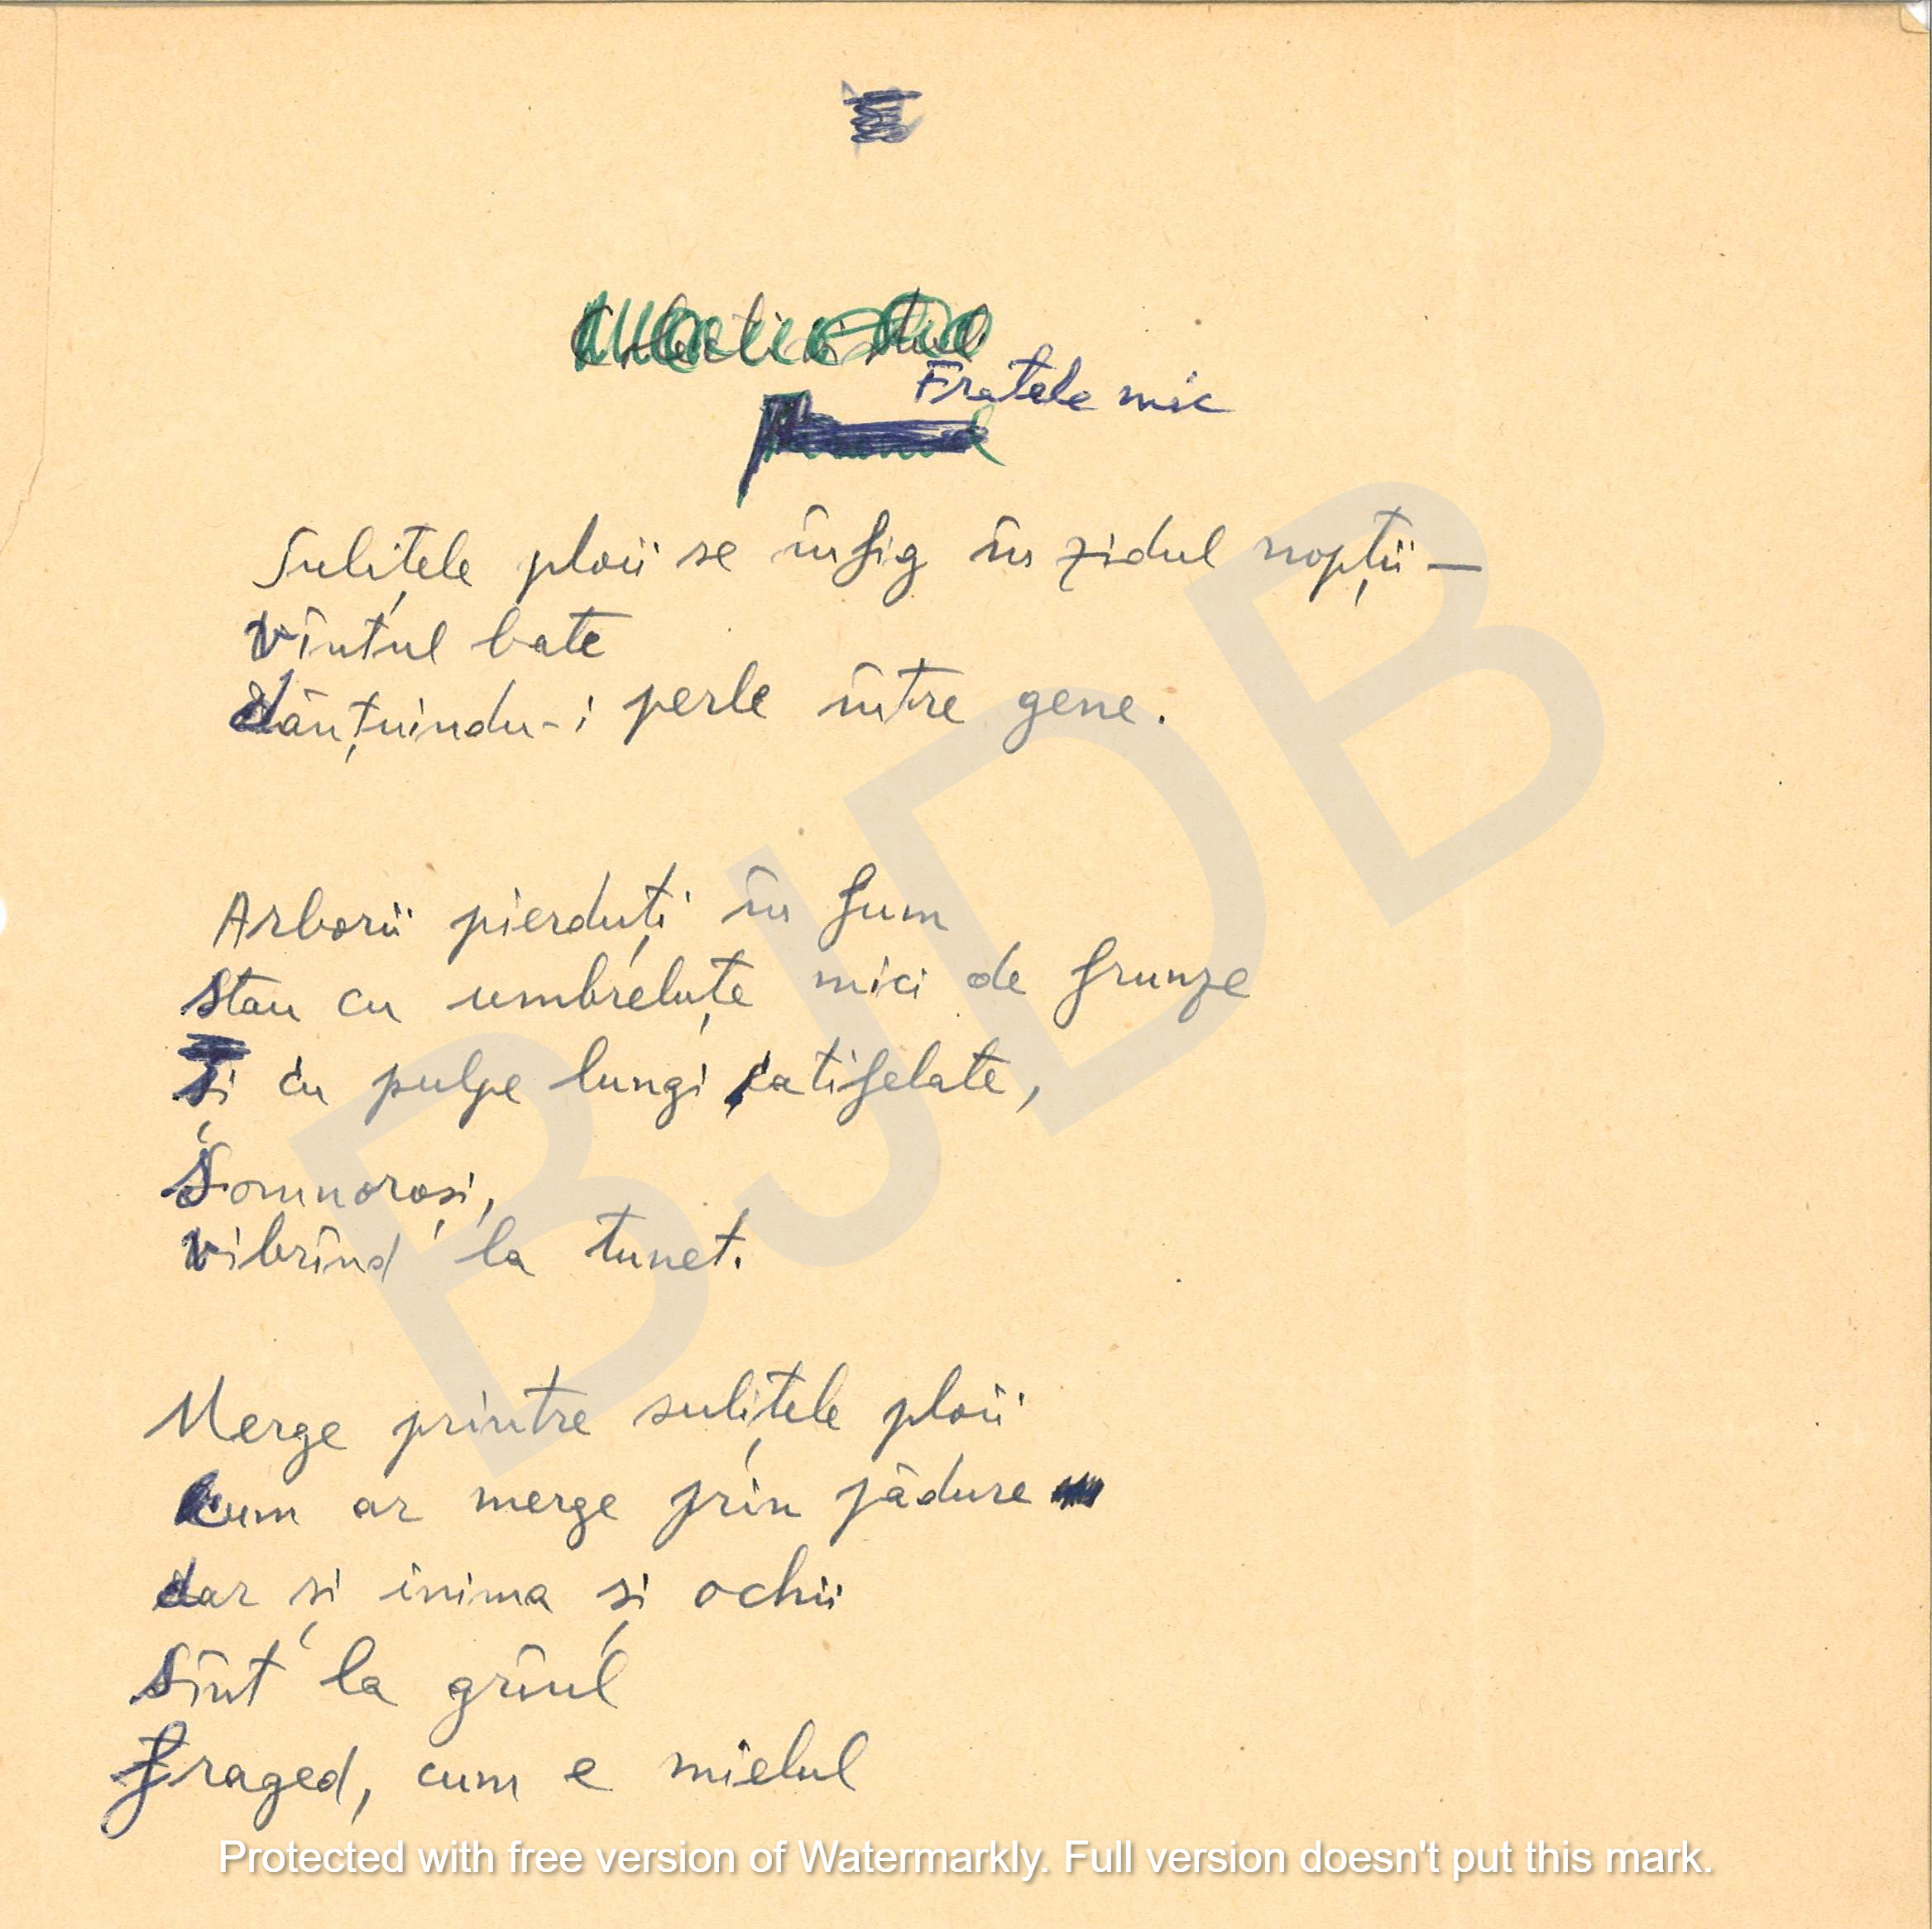 Fratele mic
Sulițele ploii se înfig în zidul nopții —
vîntul bate
dănțuindu-i perle între gene.
Arborii pierduți în fum
stau cu umbreluțe mici de frunze
și cu pulpe lungi, catifelate,
somnoroși,
vibrînd la tunet.
Merge printre sulițele ploii
cum ar merge prin pădure
dar și inima și ochii
sînt la grîul
fraged, cum e mielul
BJDB
Protected with free version of Watermarkly. Full version doesn't put this mark.